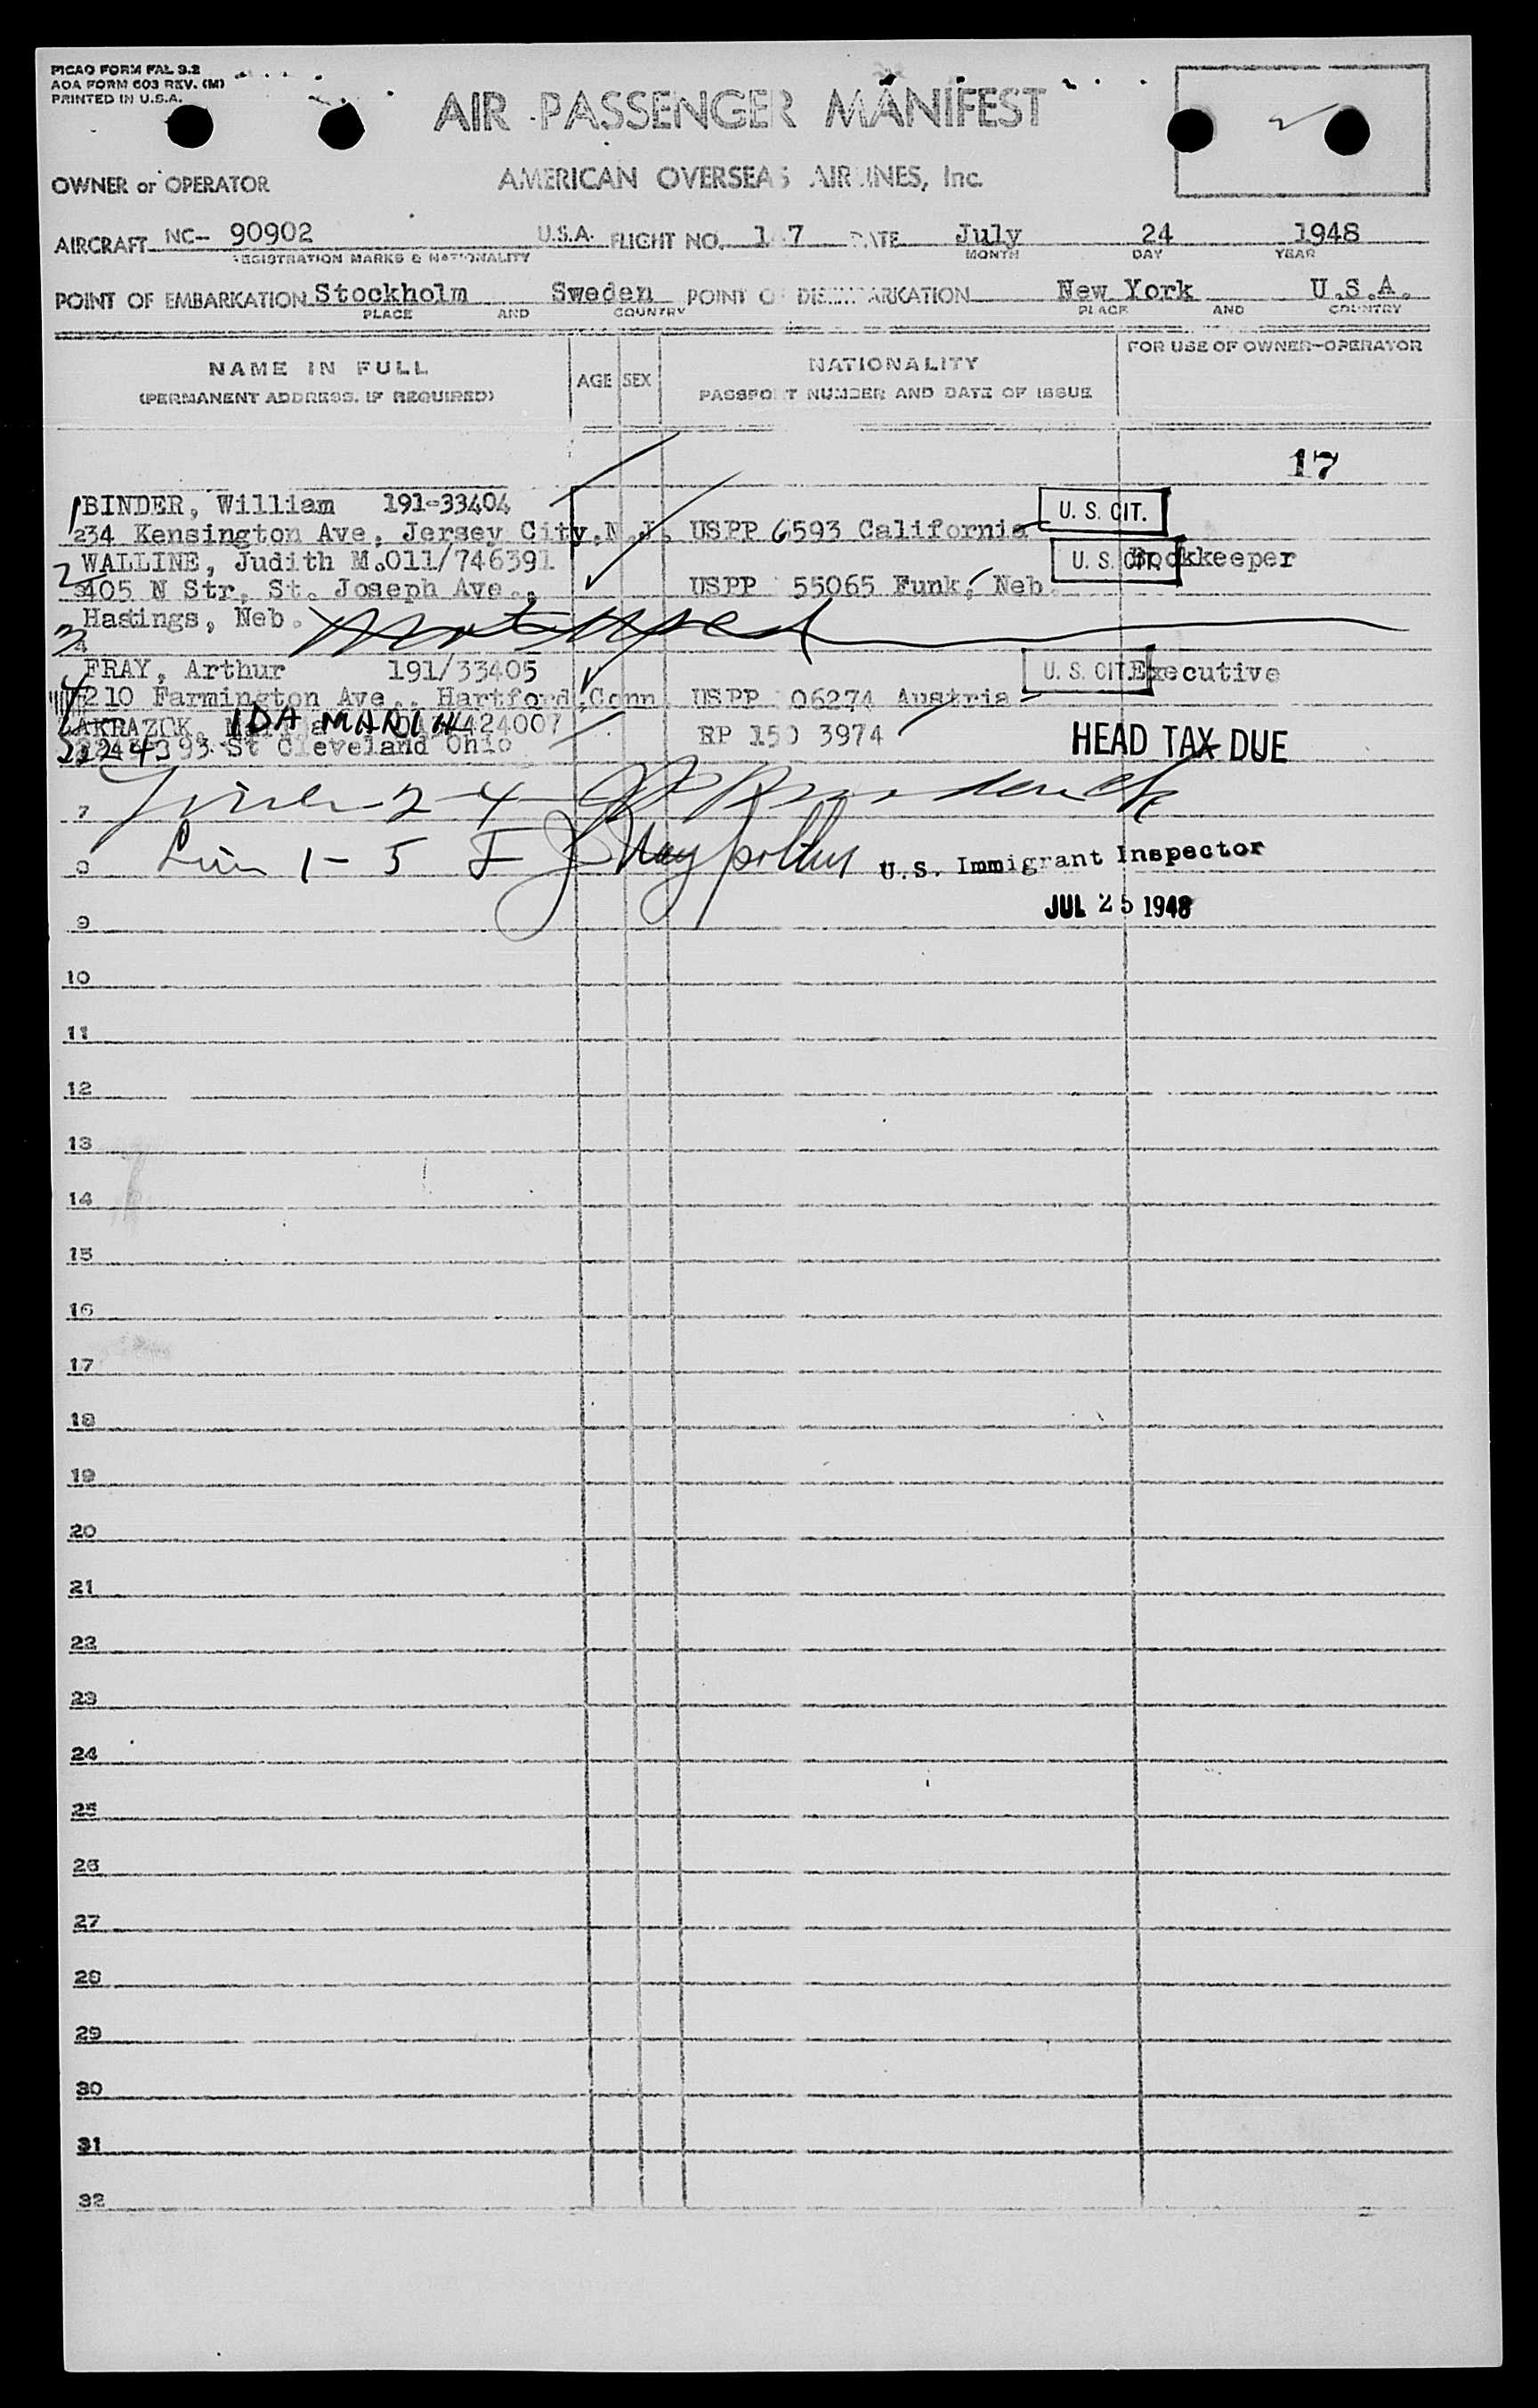 PICAO FORM FAL 3.2
AOA FORM 603 REV. (M)
PRINTED IN U.S.A.
AIR PASSENGER MANIFEST
OWNER or OPERATOR AMERICAN OVERSEAS AIRLINES, Inc.
AIRCRAFT NC- 90902 U.S.A. FLIGHT NO. 1 7 DATE July 24 1948
REGISTRATION MARKS & NATIONALITY MONTH DAY YEAR
POINT OF EMBARKATION Stockholm Sweden POINT OF DISEMBARKATION New York U.S.A.
PLACE AND COUNTRY PLACE AND COUNTRY
NAME IN FULL AGE SEX NATIONALITY FOR USE OF OWNER-OPERATOR
(PERMANENT ADDRESS, IF REQUIRED) PASSPORT NUMBER AND DATE OF ISSUE
17
1 BINDER, William 191-33404 U. S. CIT.
234 Kensington Ave, Jersey City, N.J. USPP 6593 California
2 WALLINE, Judith M. 011/746391 U. S. CIT. Bookkeeper
405 N Str, St. Joseph Ave., USPP 55065 Funk, Neb.
Hastings, Neb.
3
4
FRAY, Arthur 191/33405 U. S. CIT. Executive
210 Farmington Ave., Hartford, Conn USPP 06274 Austria
IDA MARIA 424007 RP 150 3974 HEAD TAX DUE
93 St Cleveland Ohio
7 2-4
8 1-5 U.S. Immigrant Inspector
JUL 25 1948
9
10
11
12
13
14
15
16
17
18
19
20
21
22
23
24
25
26
27
28
29
30
31
32